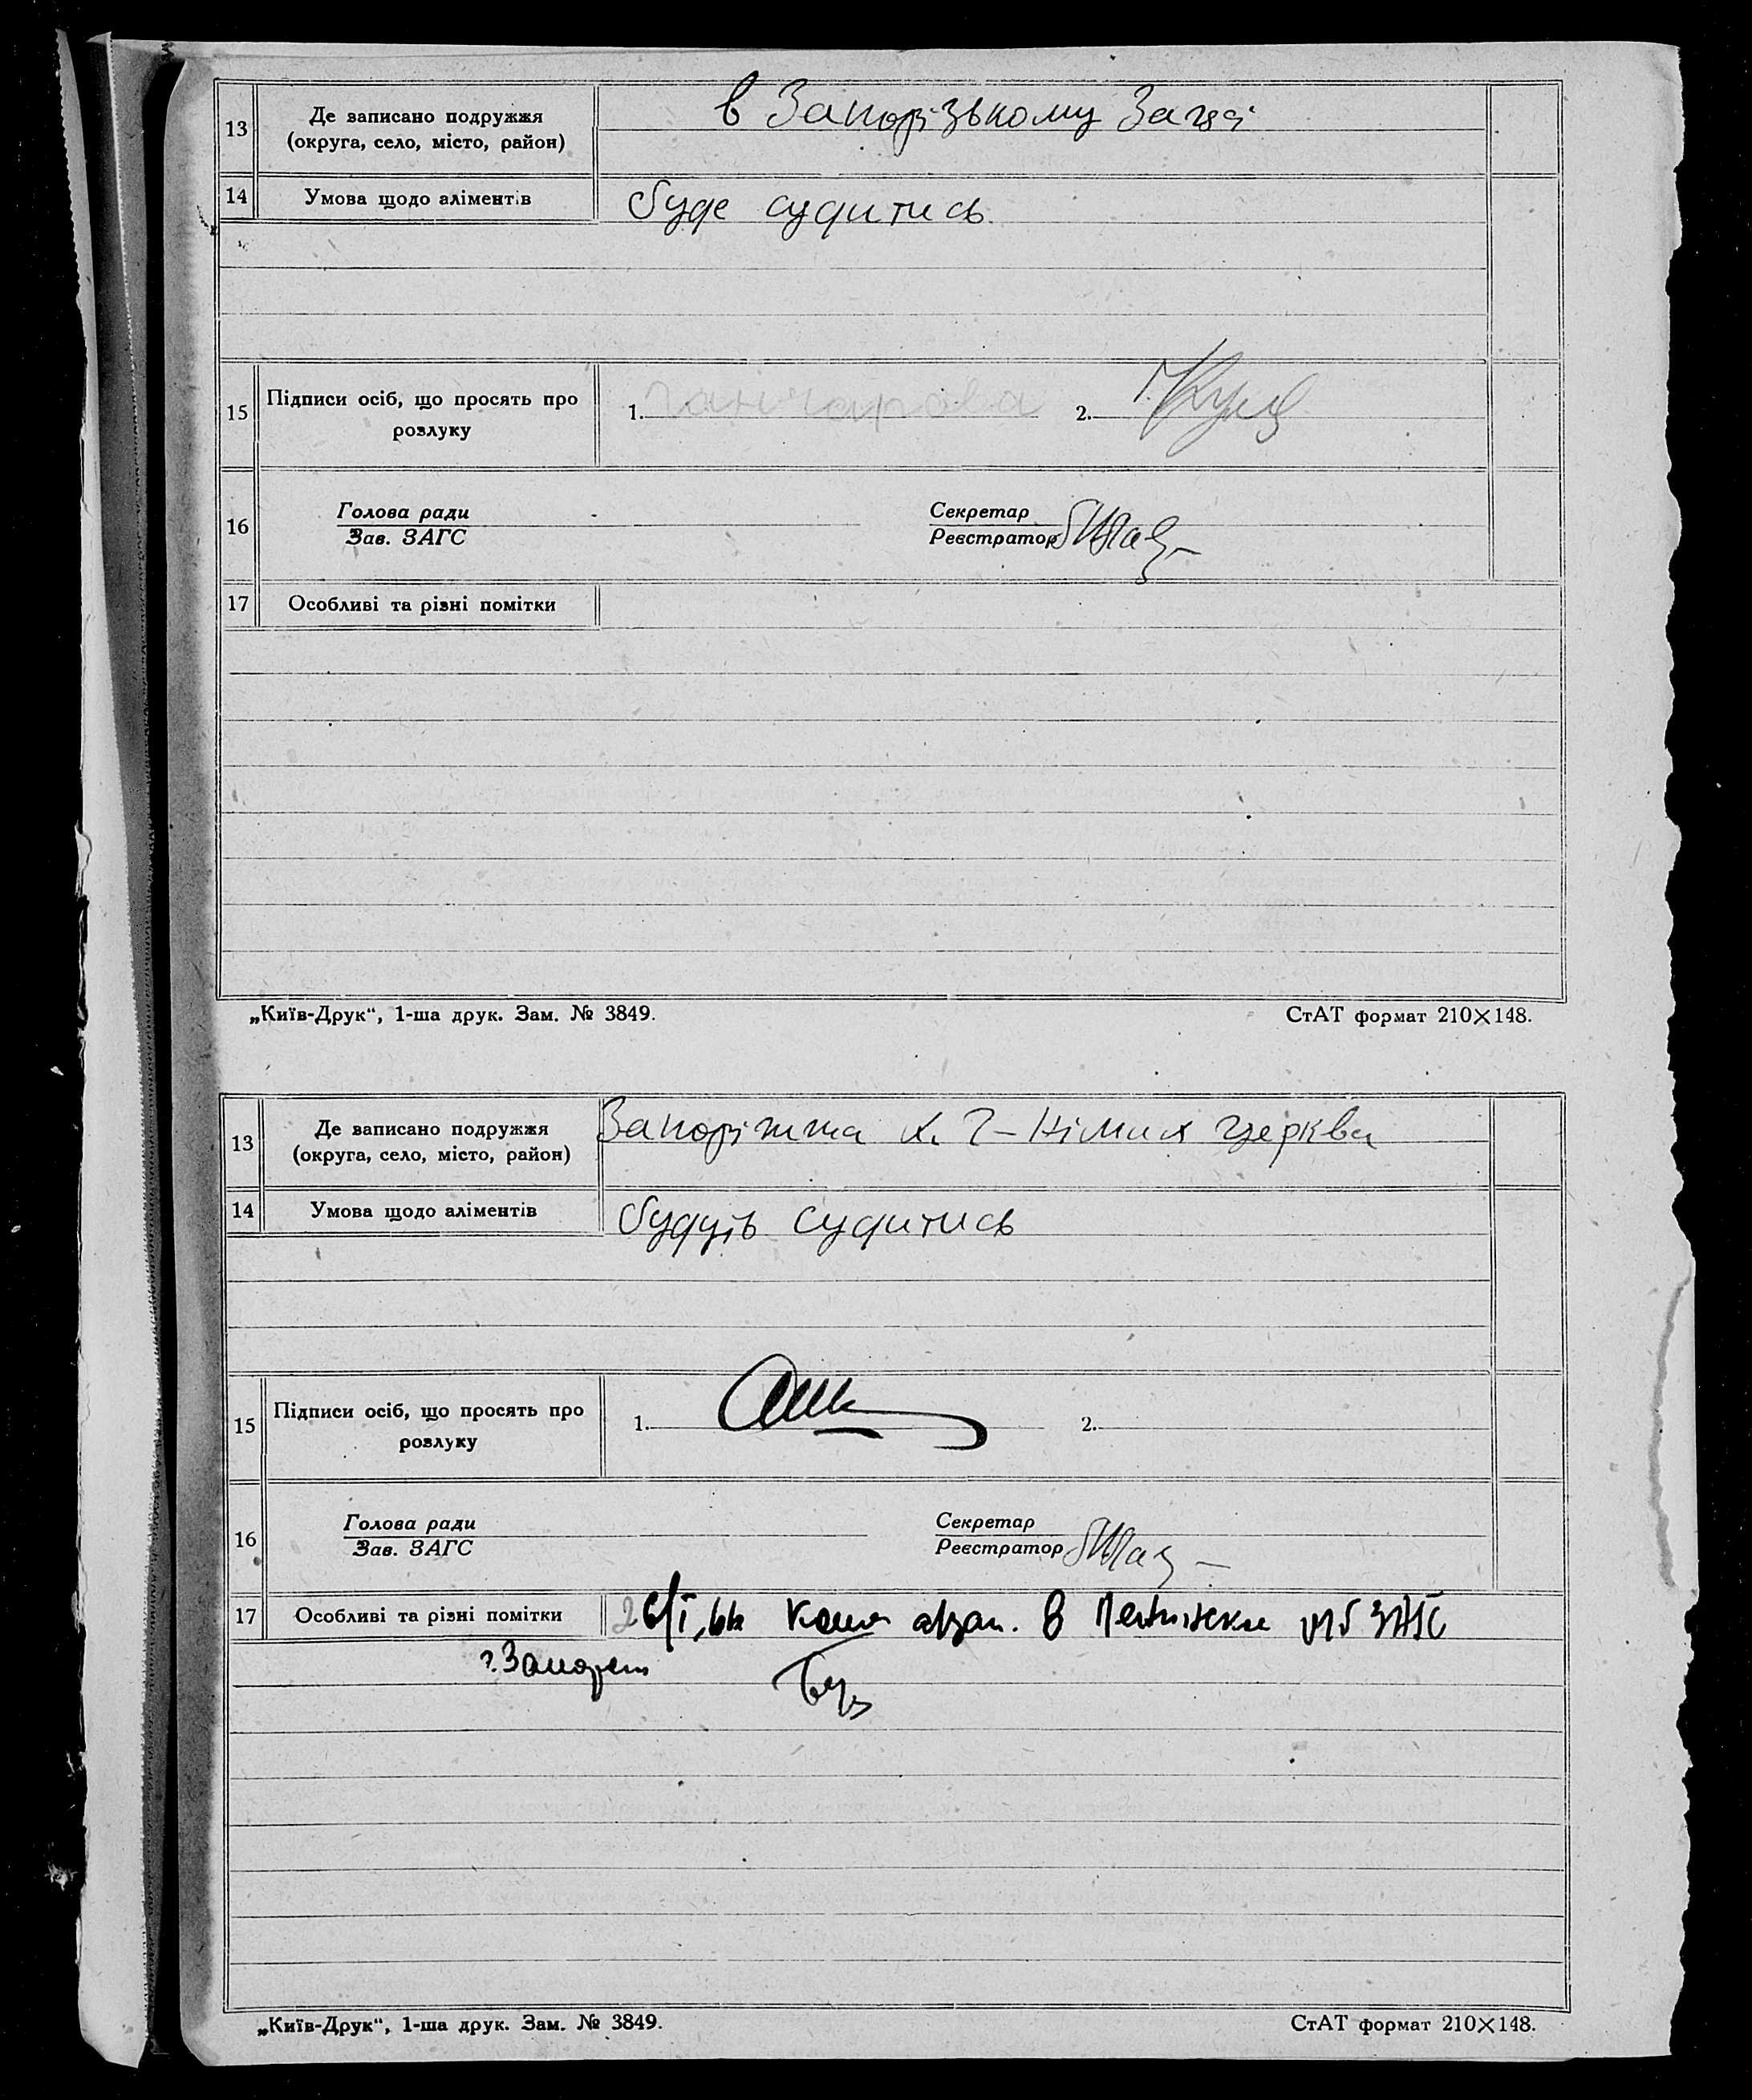 13 Де записано подружжя
(округа, село, місто, район)
в Запорізькому Загсі
14 Умова щодо аліментів
буде судитись.
15 Підписи осіб, що просять про
розлуку
1. 2.
16 Голова ради Секретар
Зав. ЗАГС Реєстратор
17 Особливі та різні помітки
„Київ-Друк“, 1-ша друк. Зам. № 3849. СтАТ формат 210×148.
13 Де записано подружжя
(округа, село, місто, район)
Запоріжжа церква
14 Умова щодо аліментів
будуть судитись
15 Підписи осіб, що просять про
розлуку
1. 2.
16 Голова ради Секретар
Зав. ЗАГС Реєстратор
17 Особливі та різні помітки
в ЗАГС
„Київ-Друк“, 1-ша друк. Зам. № 3849. СтАТ формат 210×148.